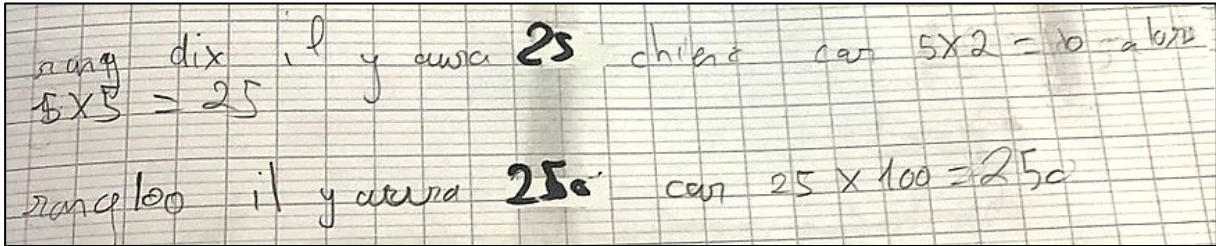 rang dix il y aura 25 chiens car 5X2 = 10 alors
5X5 = 25
rang 100 il y aura 250 car 25 X 100 = 250